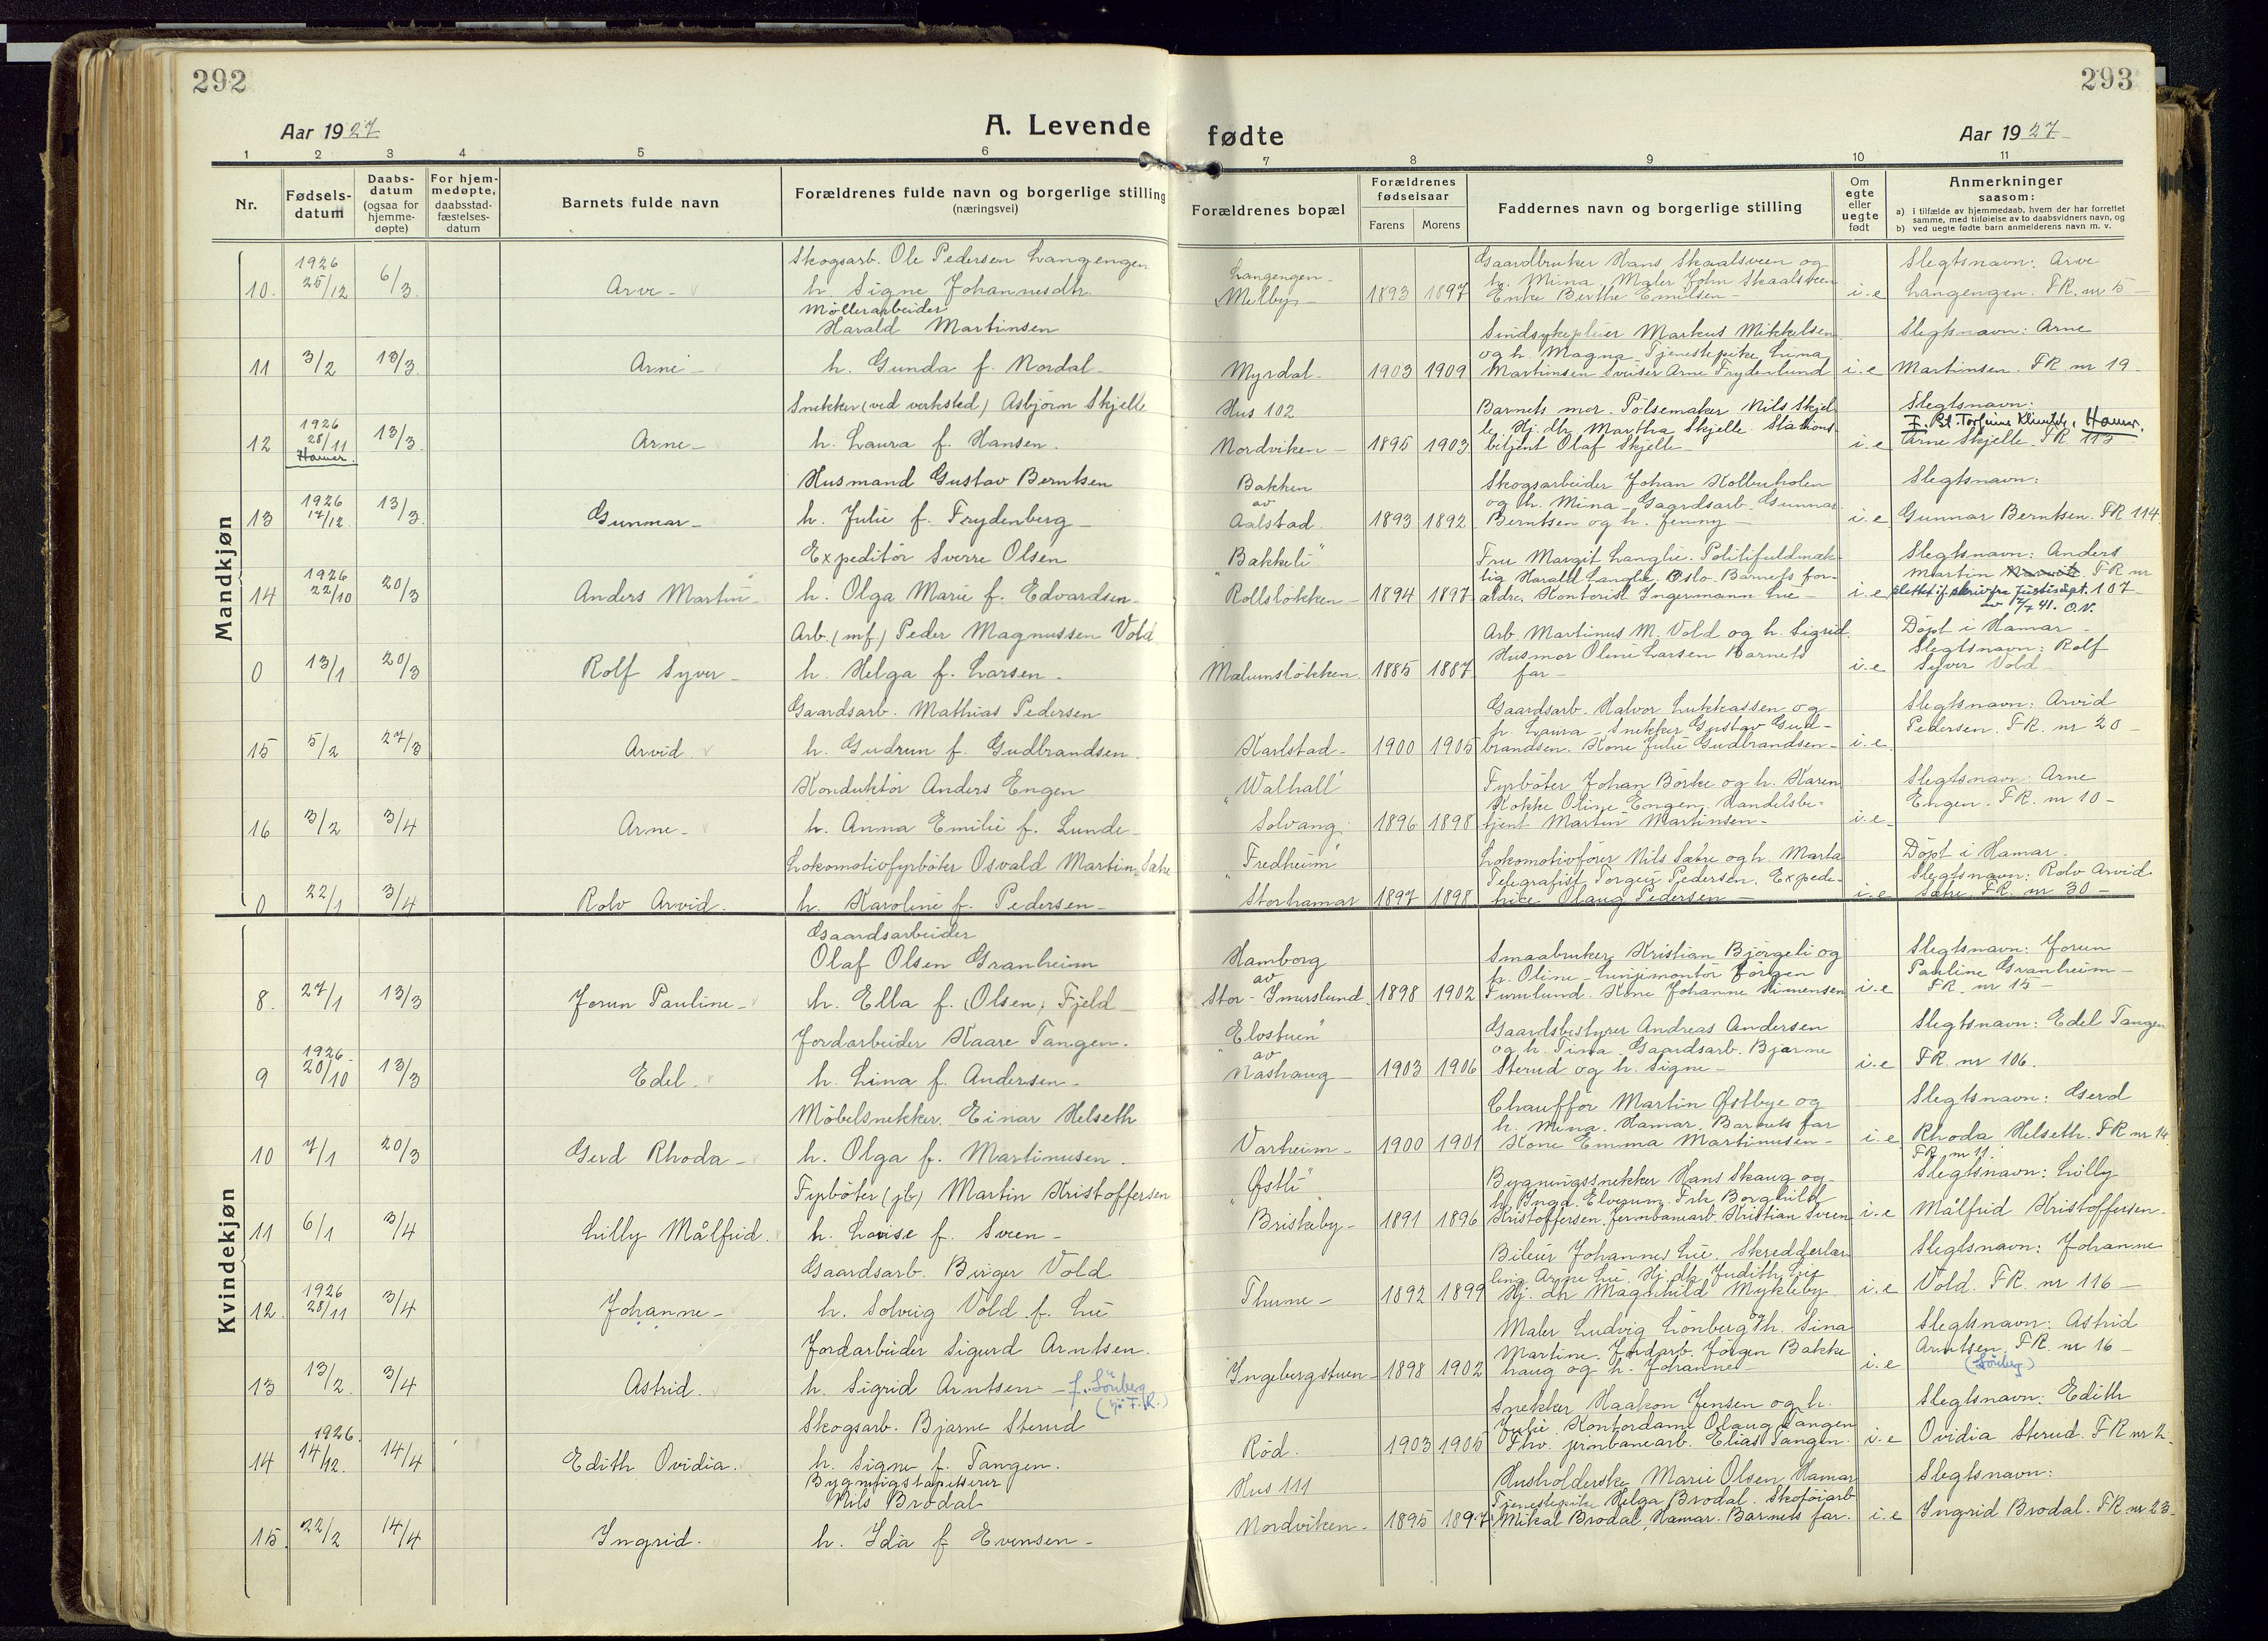 292
293
Aar 1927
A. Levende
fødte
Aar 1927
1 2 3 4 5 6
7 8 9 10 11
Nr.
Fødsels-
datum
Daabs-
datum
(ogsaa for
hjemme-
døpte)
For hjem-
medøpte,
daabsstad-
fæstelses-
datum
Barnets fulde navn
Forældrenes fulde navn og borgerlige stilling
(næringsvei)
Forældrenes bopæl
Forældrenes
fødselsaar
Farens Morens
Faddernes navn og borgerlige stilling
Om
egte
eller
uegte
født
Anmerkninger
saasom:
a) i tilfælde av hjemmedaab, hvem der har forrettet
samme, med tilføielse av to daabsvidners navn, og
b) ved uegte fødte barn anmelderens navn m. v.
Mandkjøn
10. 1926 25/12 6/3 Arve
Skogsarb. Ole Pedersen Langengen
h. Signe Johannesdtr.
Langengen
Melby 1893 1897
Gaardbruker Hans Skaalsveen og
h. Mina. Maler John Skaalsveen
Enke Berthe Emilsen i.e
Slegtsnavn: Arve
Langengen. FR. nr 5
11 3/2 13/3 Arne
Møllerarbeider
Harald Martinsen
h. Gunda f. Nordal
Myrdal 1903 1909
Sindsykepleier Markus Mikkelsen
og h. Magna. Tjenestepike Lina
Martinsen Sveiser Arne Frydenlund i.e
Slegtsnavn: Arne
Martinsen. FR nr 19
12 1926 28/11 Hamar. 13/3 Arne
Snekker (ved verksted) Asbjørn Skjelle
h. Laura f. Hansen.
Hus 102
Nordviken 1895 1903
Barnets mor. Pølsemaker Nils Skjel-
le. Hj. dtr Martha Skjelle. Stations-
betjent Olaf Skjelle i.e
Slegtsnavn:
Hamar.
Arne Skjelle. FR 113
13 1926 17/12. 13/3. Gunnar
Husmand Gustav Berntsen
h. Julie f. Frydenberg
Bakken
av
Aalstad. 1893 1892
Skogsarbeider Johan Kolberholen
og h. Mina. Gaardsarb. Gunnar
Berntsen og h. Jenny i.e
Slegtsnavn:
Gunnar Berntsen. FR 114.
14 1926 22/10 20/3 Anders Martin
Expeditør Sverre Olsen
h. Olga Marie f. Edvardsen
"Bakkeli"
Rollsløkken 1894 1897
Fru Margit Langlie. Politifuldmæk-
tig Harald Langlie. Oslo. Barnets for-
ældre. Kontorist Ingermann Lie i.e
Slegtsnavn: Anders
Martin FR nr
107
7/7 41. O.N.
0 13/1 20/3 Rolf Syver
Arb. (mf.) Peder Magnussen Vold
h. Helga f. Larsen.
Mælumsløkken. 1885 1887
Arb. Martinus M. Vold og h. Sigrid.
Husmor Oline Larsen Barnets
far i.e
Døpt i Hamar
Slegtsnavn: Rolf
Syver Vold
15 5/2 27/3 Arvid.
Gaardsarb. Mathias Pedersen
h. Gudrun f. Gudbrandsen.
Karlstad 1900 1905
Gaardsarb. Halvor Lukkassen og
h. Laura – Snekker Gustav Gud-
brandsen. Kone Julie Gudbrandsen i.e.
Slegtsnavn: Arvid
Pedersen. FR. nr 20
16 3/2 3/4 Arne
Konduktør Anders Engen
h. Anna Emilie f. Lunde
"Walhall"
Solvang. 1896 1898
Fyrbøter Johan Børke og h. Karen
Kokke Oline Engen. Handelsbe-
tjent Martin Martinsen i.e
Slegtsnavn: Arne
Engen. FR. nr 10
0 22/1 3/4 Rolv Arvid.
Lokomotivfyrbøter Osvald Martin Sætre
h. Karoline f. Pedersen
"Fredheim"
Storhamar 1897 1898
Lokomotivfører Nils Sætre og h. Marta
Telegrafist Torgeir Pedersen. Expedi-
trice Olaug Pedersen i.e
Døpt i Hamar.
Slegtsnavn: Rolv Arvid
Sætre. FR. nr 30
Kvindekjøn
8. 27/1 13/3 Jorun Pauline
Gaardsarbeider
Olaf Olsen Granheim
h. Ella f. Olsen, Fjeld
Hamborg
av
Stor-Smerslund. 1898 1902
Smaabruker Kristian Bjørgeli og
h. Oline – Linjemontør Jørgen
Furulund. Kone Johanne Simensen i.e
Slegtsnavn: Jorun
Pauline Granheim
FR. nr 15
9 1926 20/10 13/3 Edel
Jordarbeider Kaare Tangen.
h. Lina f. Andersen
"Elvstuen"
av
Nashaug 1903 1906
Gaardsbestyrer Andreas Andersen
og h. Tina. Gaardsarb. Bjarne
Sterud og h. Signe i.e
Slegtsnavn: Edel Tangen
FR. nr 106.
10 7/1 20/3 Gerd Rhoda
Møbelsnekker Einar Helseth
h. Olga f. Martinusen.
Varheim 1900 1901
Chauffør Martin Østbye og
h. Mina. Hamar. Barnets far
Kone Emma Martinusen i.e
Slegtsnavn: Gerd
Rhoda Helseth. FR nr 14
11 6/1 3/4 Lilly Målfrid.
Fyrbøter (jb) Martin Kristoffersen
h. Louise f. Sveen
"Østli"
Briskeby 1891 1896
Bygningssnekker Hans Skaug og
h. Inga. Elverum. Frk Borghild
Kristoffersen. Jernbanearb. Kristian Sveen i.e
FR. nr 11.
Slegtsnavn: Lilly
Målfrid Kristoffersen.
12. 1926 28/11 3/4 Johanne
Gaardsarb. Birger Vold
h. Solveig Vold f. Lie
Thune 1892 1899
Bileier Johannes Lie. Skredderlær-
ling Arne Lie. Hj. dtr Judith Lie
Hj. dtr Magnhild Mykleby i.e
Slegtsnavn: Johanne
Vold. FR. nr 116
13 13/2. 3/4 Astrid.
Jordarbeider Sigurd Arntsen.
h. Sigrid Arntsen f. Lönberg
F.R.)
Ingebergstuen 1898 1902
Maler Ludvig Lönberg og h. Sina
Martine. Jordarb. Jörgen Bakke
haug og h. Johanne i.e
Slegtsnavn: Astrid
Arntsen. FR. nr 16
(Lönberg)
14 1926. 14/12. 14/4 Edith Ovidia.
Skogsarb. Bjarne Sterud
h. Signe f. Tangen.
Rød. 1903 1905
Snekker Haakon Jensen og h.
Julie. Kontordame Olaug Tangen
Fhv. jernbanearb. Elias Tangen. i.e
Slegtsnavn: Edith
Ovidia Sterud. FR nr 2.
15. 22/2 14/4 Ingrid.
Bygningstapetserer
Nils Brodal
h. Ida f Evensen
Hus 111
Nordviken 1895 1897
Husholderske Marie Olsen, Hamar
Tjenestepike Helga Brodal. Skoføiarb
Mikal Brodal, Hamar. Barnets far. i.e
Slegtsnavn:
Ingrid Brodal. FR. nr 23